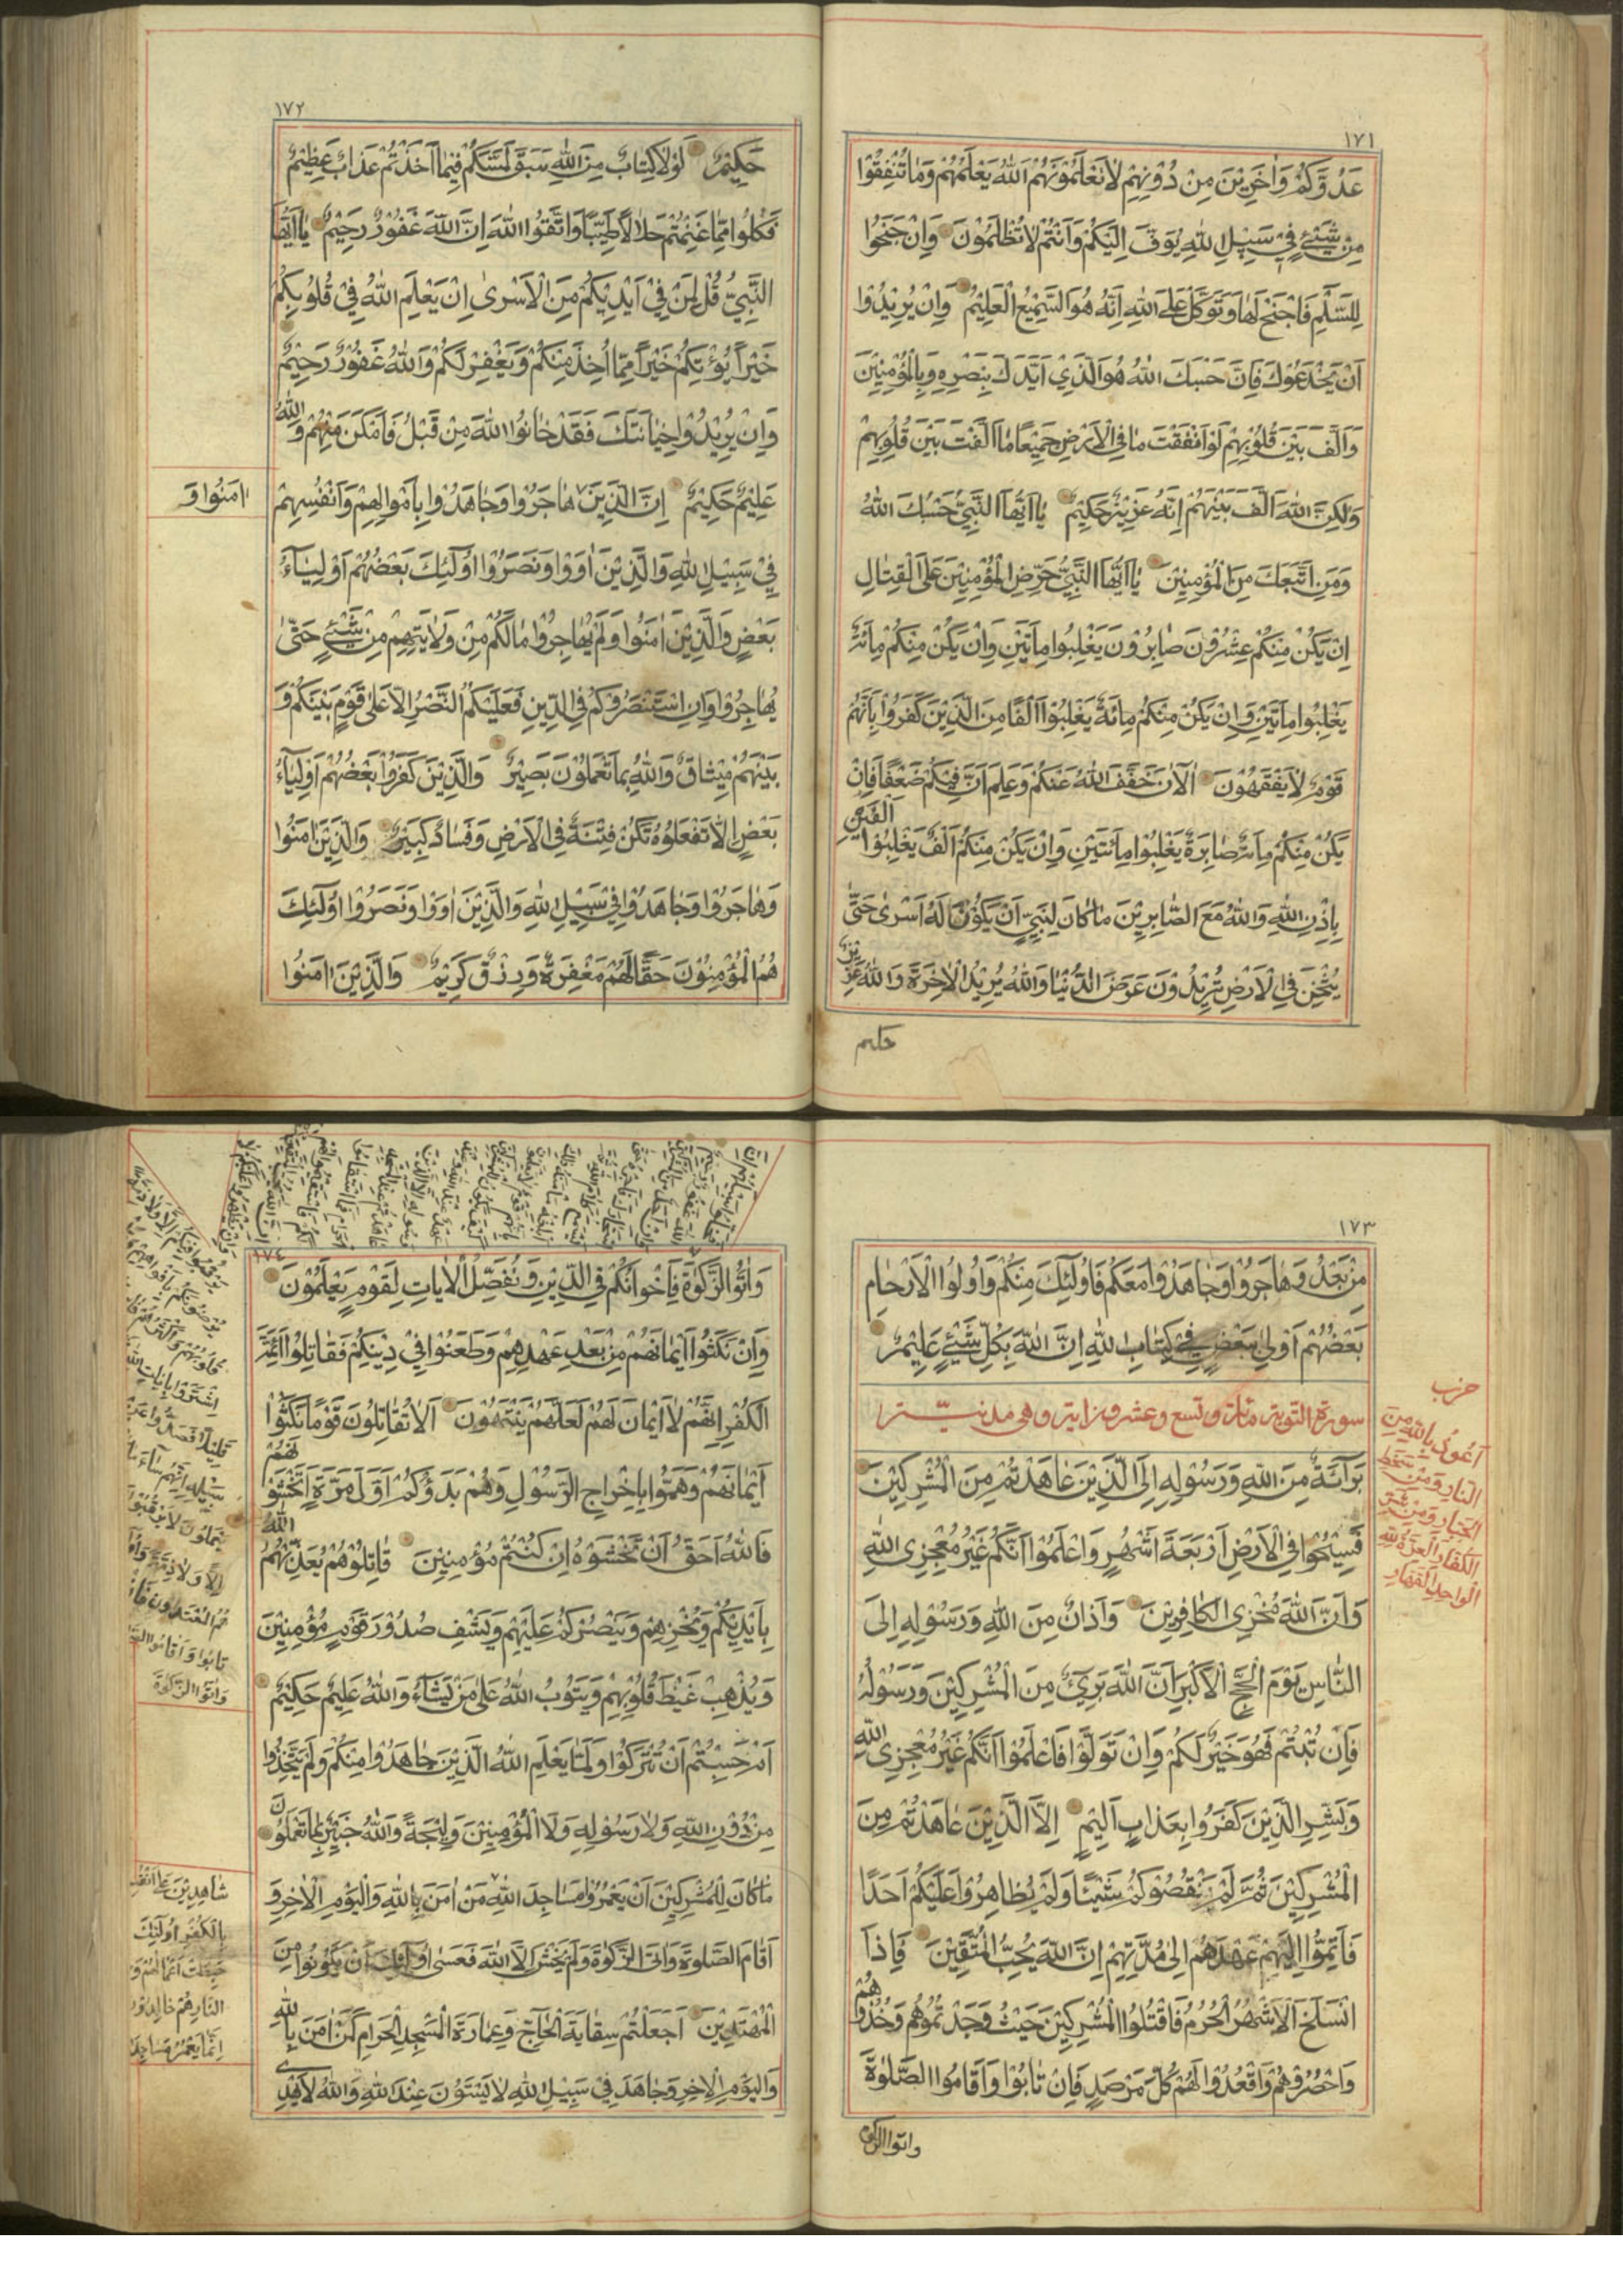 ١٧١
عَدُوَّكُمْ وَاٰخَرِيْنَ مِنْ دُوْنِهِمْ لَا تَعْلَمُوْنَهُمْ اَللّٰهُ يَعْلَمُهُمْ وَمَا تُنْفِقُوْا
مِنْ شَيْئٍ فِيْ سَبِيْلِ اللّٰهِ يُوَفَّ اِلَيْكُمْ وَاَنْتُمْ لَا تُظْلَمُوْنَ وَاِنْ جَنَحُوْا
لِلسَّلْمِ فَاجْنَحْ لَهَا وَتَوَكَّلْ عَلَى اللّٰهِ اِنَّهُ هُوَ السَّمِيْعُ الْعَلِيْمُ وَاِنْ يُرِيْدُوْا
اَنْ يَخْدَعُوْكَ فَاِنَّ حَسْبَكَ اللّٰهُ هُوَ الَّذِيْ اَيَّدَكَ بِنَصْرِهِ وَبِالْمُؤْمِنِيْنَ
وَاَلَّفَ بَيْنَ قُلُوْبِهِمْ لَوْ اَنْفَقْتَ مَا فِي الْاَرْضِ جَمِيْعًا مَا اَلَّفْتَ بَيْنَ قُلُوْبِهِمْ
وَلٰكِنَّ اللّٰهَ اَلَّفَ بَيْنَهُمْ اِنَّهُ عَزِيْزٌ حَكِيْمٌ يَا اَيُّهَا النَّبِيُّ حَسْبُكَ اللّٰهُ
وَمَنِ اتَّبَعَكَ مِنَ الْمُؤْمِنِيْنَ يَا اَيُّهَا النَّبِيُّ حَرِّضِ الْمُؤْمِنِيْنَ عَلَى الْقِتَالِ
اِنْ يَكُنْ مِنْكُمْ عِشْرُوْنَ صَابِرُوْنَ يَغْلِبُوْا مِاَتَيْنِ وَاِنْ يَكُنْ مِنْكُمْ مِائَةٌ
يَغْلِبُوْا مِاَتَيْنِ وَاِنْ يَكُنْ مِنْكُمْ مِائَةٌ يَغْلِبُوْا اَلْفًا مِنَ الَّذِيْنَ كَفَرُوْا بِاَنَّهُمْ
قَوْمٌ لَا يَفْقَهُوْنَ اَلْاٰنَ خَفَّفَ اللّٰهُ عَنْكُمْ وَعَلِمَ اَنَّ فِيْكُمْ ضَعْفًا فَاِنْ
يَكُنْ مِنْكُمْ مِائَةٌ صَابِرَةٌ يَغْلِبُوْا مِائَتَيْنِ وَاِنْ يَكُنْ مِنْكُمْ اَلْفٌ يَغْلِبُوْا اَلْفَيْنِ
بِاِذْنِ اللّٰهِ وَاللّٰهُ مَعَ الصَّابِرِيْنَ مَا كَانَ لِنَبِيٍّ اَنْ يَكُوْنَ لَهُ اَسْرٰى حَتّٰى
يُثْخِنَ فِي الْاَرْضِ تُرِيْدُوْنَ عَرَضَ الدُّنْيَا وَاللّٰهُ يُرِيْدُ الْاٰخِرَةَ وَاللّٰهُ عَزِيْزٌ
حكيم
١٧٢
حَكِيْمٌ لَوْلَا كِتَابٌ مِنَ اللّٰهِ سَبَقَ لَمَسَّكُمْ فِيْمَا اَخَذْتُمْ عَذَابٌ عَظِيْمٌ
فَكُلُوْا مِمَّا غَنِمْتُمْ حَلَالًا طَيِّبًا وَاتَّقُوا اللّٰهَ اِنَّ اللّٰهَ غَفُوْرٌ رَحِيْمٌ يَا اَيُّهَا
النَّبِيُّ قُلْ لِمَنْ فِيْ اَيْدِيْكُمْ مِنَ الْاَسْرٰى اِنْ يَعْلَمِ اللّٰهُ فِيْ قُلُوْبِكُمْ
خَيْرًا يُؤْتِكُمْ خَيْرًا مِمَّا اُخِذَ مِنْكُمْ وَيَغْفِرْ لَكُمْ وَاللّٰهُ غَفُوْرٌ رَحِيْمٌ
وَاِنْ يُرِيْدُوْا خِيَانَتَكَ فَقَدْ خَانُوا اللّٰهَ مِنْ قَبْلُ فَاَمْكَنَ مِنْهُمْ وَاللّٰهُ
عَلِيْمٌ حَكِيْمٌ اِنَّ الَّذِيْنَ هَاجَرُوْا وَجَاهَدُوْا بِاَمْوَالِهِمْ وَاَنْفُسِهِمْ
اٰمَنُوْا وَ
فِيْ سَبِيْلِ اللّٰهِ وَالَّذِيْنَ اٰوَوْا وَنَصَرُوْا اُولٰئِكَ بَعْضُهُمْ اَوْلِيَاءُ
بَعْضٍ وَالَّذِيْنَ اٰمَنُوْا وَلَمْ يُهَاجِرُوْا مَا لَكُمْ مِنْ وَلَايَتِهِمْ مِنْ شَيْئٍ حَتّٰى
يُهَاجِرُوْا وَاِنِ اسْتَنْصَرُوْكُمْ فِي الدِّيْنِ فَعَلَيْكُمُ النَّصْرُ اِلَّا عَلٰى قَوْمٍ بَيْنَكُمْ وَ
بَيْنَهُمْ مِيْثَاقٌ وَاللّٰهُ بِمَا تَعْمَلُوْنَ بَصِيْرٌ وَالَّذِيْنَ كَفَرُوْا بَعْضُهُمْ اَوْلِيَاءُ
بَعْضٍ اِلَّا تَفْعَلُوْهُ تَكُنْ فِتْنَةٌ فِي الْاَرْضِ وَفَسَادٌ كَبِيْرٌ وَالَّذِيْنَ اٰمَنُوْا
وَهَاجَرُوْا وَجَاهَدُوْا فِيْ سَبِيْلِ اللّٰهِ وَالَّذِيْنَ اٰوَوْا وَنَصَرُوْا اُولٰئِكَ
هُمُ الْمُؤْمِنُوْنَ حَقًّا لَهُمْ مَغْفِرَةٌ وَرِزْقٌ كَرِيْمٌ وَالَّذِيْنَ اٰمَنُوْا
١٧٣
مِنْ بَعْدُ وَهَاجَرُوْا وَجَاهَدُوْا مَعَكُمْ فَاُولٰئِكَ مِنْكُمْ وَاُولُوا الْاَرْحَامِ
بَعْضُهُمْ اَوْلٰى بِبَعْضٍ فِيْ كِتَابِ اللّٰهِ اِنَّ اللّٰهَ بِكُلِّ شَيْئٍ عَلِيْمٌ
سورة التوبة مائة وتسع وعشرون اية وهى مدنية
حزب
اَعُوْذُ بِاللّٰهِ مِنَ
النَّارِ وَمِنْ سَخَطِ
الْجَبَّارِ وَمِنْ شَرِّ
الْكُفَّارِ الْعِزَّةُ لِلّٰهِ
الْوَاحِدِ الْقَهَّارِ
بَرَائَةٌ مِنَ اللّٰهِ وَرَسُوْلِهِ اِلَى الَّذِيْنَ عَاهَدْتُمْ مِنَ الْمُشْرِكِيْنَ
فَسِيْحُوْا فِي الْاَرْضِ اَرْبَعَةَ اَشْهُرٍ وَاعْلَمُوْا اَنَّكُمْ غَيْرُ مُعْجِزِي اللّٰهِ
وَاَنَّ اللّٰهَ مُخْزِي الْكَافِرِيْنَ وَاَذَانٌ مِنَ اللّٰهِ وَرَسُوْلِهِ اِلَى
النَّاسِ يَوْمَ الْحَجِّ الْاَكْبَرِ اَنَّ اللّٰهَ بَرِيْءٌ مِنَ الْمُشْرِكِيْنَ وَرَسُوْلُهُ
فَاِنْ تُبْتُمْ فَهُوَ خَيْرٌ لَكُمْ وَاِنْ تَوَلَّوْا فَاعْلَمُوْا اَنَّكُمْ غَيْرُ مُعْجِزِي اللّٰهِ
وَبَشِّرِ الَّذِيْنَ كَفَرُوْا بِعَذَابٍ اَلِيْمٍ اِلَّا الَّذِيْنَ عَاهَدْتُمْ مِنَ
الْمُشْرِكِيْنَ ثُمَّ لَمْ يَنْقُصُوْكُمْ شَيْئًا وَلَمْ يُظَاهِرُوْا عَلَيْكُمْ اَحَدًا
فَاَتِمُّوْا اِلَيْهِمْ عَهْدَهُمْ اِلٰى مُدَّتِهِمْ اِنَّ اللّٰهَ يُحِبُّ الْمُتَّقِيْنَ فَاِذَا
انْسَلَخَ الْاَشْهُرُ الْحُرُمُ فَاقْتُلُوا الْمُشْرِكِيْنَ حَيْثُ وَجَدْتُمُوْهُمْ وَخُذُوْهُمْ
وَاحْصُرُوْهُمْ وَاقْعُدُوْا لَهُمْ كُلَّ مَرْصَدٍ فَاِنْ تَابُوْا وَاَقَامُوا الصَّلٰوةَ
واتوا الزكوة
١٧٤
وَاٰتَوُا الزَّكٰوةَ فَاِخْوَانُكُمْ فِي الدِّيْنِ وَنُفَصِّلُ الْاٰيَاتِ لِقَوْمٍ يَعْلَمُوْنَ
وَاِنْ نَكَثُوْا اَيْمَانَهُمْ مِنْ بَعْدِ عَهْدِهِمْ وَطَعَنُوْا فِيْ دِيْنِكُمْ فَقَاتِلُوْا اَئِمَّةَ
الْكُفْرِ اِنَّهُمْ لَا اَيْمَانَ لَهُمْ لَعَلَّهُمْ يَنْتَهُوْنَ اَلَا تُقَاتِلُوْنَ قَوْمًا نَكَثُوْا
اَيْمَانَهُمْ وَهَمُّوْا بِاِخْرَاجِ الرَّسُوْلِ وَهُمْ بَدَؤُكُمْ اَوَّلَ مَرَّةٍ اَتَخْشَوْنَهُمْ
فَاللّٰهُ اَحَقُّ اَنْ تَخْشَوْهُ اِنْ كُنْتُمْ مُؤْمِنِيْنَ قَاتِلُوْهُمْ يُعَذِّبْهُمُ اللّٰهُ
بِاَيْدِيْكُمْ وَيُخْزِهِمْ وَيَنْصُرْكُمْ عَلَيْهِمْ وَيَشْفِ صُدُوْرَ قَوْمٍ مُؤْمِنِيْنَ
وَيُذْهِبْ غَيْظَ قُلُوْبِهِمْ وَيَتُوْبُ اللّٰهُ عَلٰى مَنْ يَشَاءُ وَاللّٰهُ عَلِيْمٌ حَكِيْمٌ
اَمْ حَسِبْتُمْ اَنْ تُتْرَكُوْا وَلَمَّا يَعْلَمِ اللّٰهُ الَّذِيْنَ جَاهَدُوْا مِنْكُمْ وَلَمْ يَتَّخِذُوْا
مِنْ دُوْنِ اللّٰهِ وَلَا رَسُوْلِهِ وَلَا الْمُؤْمِنِيْنَ وَلِيْجَةً وَاللّٰهُ خَبِيْرٌ بِمَا تَعْمَلُوْنَ
مَا كَانَ لِلْمُشْرِكِيْنَ اَنْ يَعْمُرُوْا مَسَاجِدَ اللّٰهِ مَنْ اٰمَنَ بِاللّٰهِ وَالْيَوْمِ الْاٰخِرِ وَ
اَقَامَ الصَّلٰوةَ وَاٰتَى الزَّكٰوةَ وَلَمْ يَخْشَ اِلَّا اللّٰهَ فَعَسٰى اُولٰئِكَ اَنْ يَكُوْنُوْا مِنَ
الْمُهْتَدِيْنَ اَجَعَلْتُمْ سِقَايَةَ الْحَاجِّ وَعِمَارَةَ الْمَسْجِدِ الْحَرَامِ كَمَنْ اٰمَنَ بِاللّٰهِ
وَالْيَوْمِ الْاٰخِرِ وَجَاهَدَ فِيْ سَبِيْلِ اللّٰهِ لَا يَسْتَوُوْنَ عِنْدَ اللّٰهِ وَاللّٰهُ لَا يَهْدِي
اشْتَرَوْا بِاٰيَاتِ اللّٰهِ
قَلِيْلًا فَصَدُّوْا عَنْ
سَبِيْلِهِ اِنَّهُمْ سَاءَ مَا
يَعْمَلُوْنَ لَا يَرْقُبُوْنَ
اِلًّا وَلَا ذِمَّةً
هُمُ الْمُعْتَدُوْنَ فَاِنْ
تَابُوْا وَاَقَامُوا
وَاٰتَوُا الزَّكٰوةَ
شَاهِدِيْنَ عَلٰى اَنْفُسِ
بِالْكُفْرِ اُولٰئِكَ
حَبِطَتْ اَعْمَالُهُمْ وَ
النَّارِ هُمْ خَالِدُوْنَ
اِنَّمَا يَعْمُرُ مَسَاجِدَ